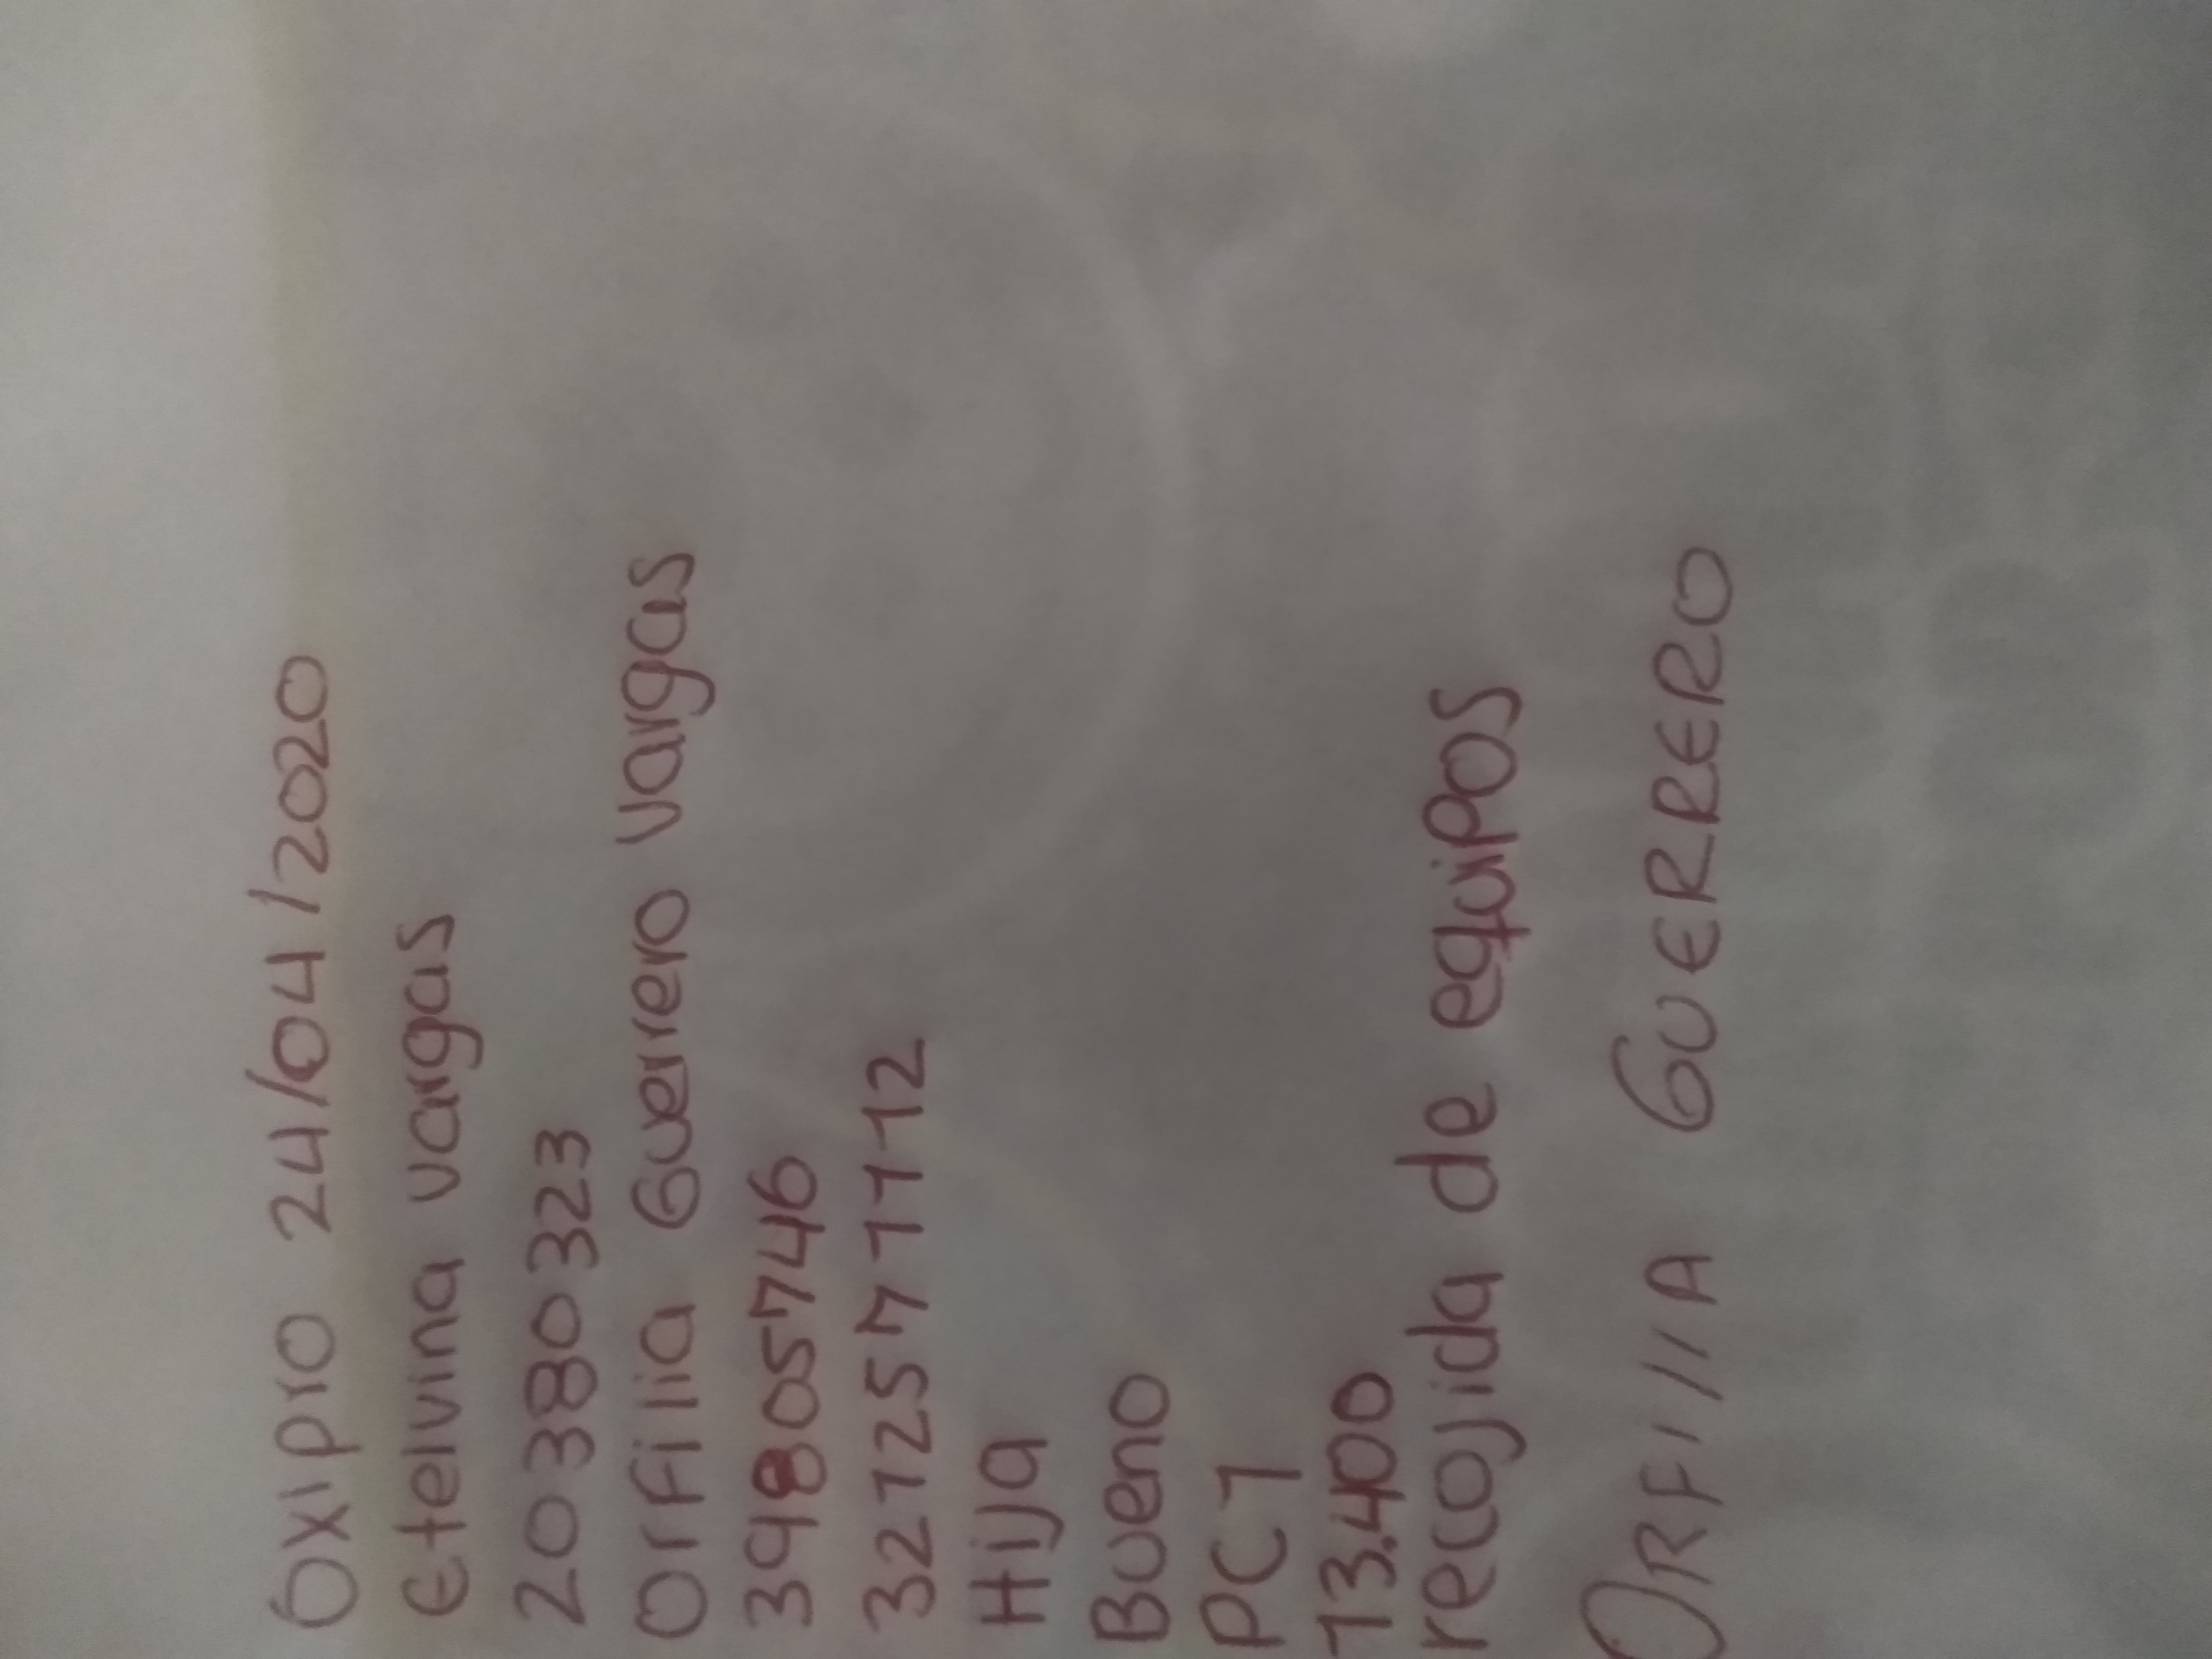 Oxipro 24/04/2020
Etelvina vargas
20380323
Orfilia Guerrero Vargas
39805746
3212577112
Hija
Bueno
PC1
13.400
recojida de equipos
ORFIlIA GUERRERO